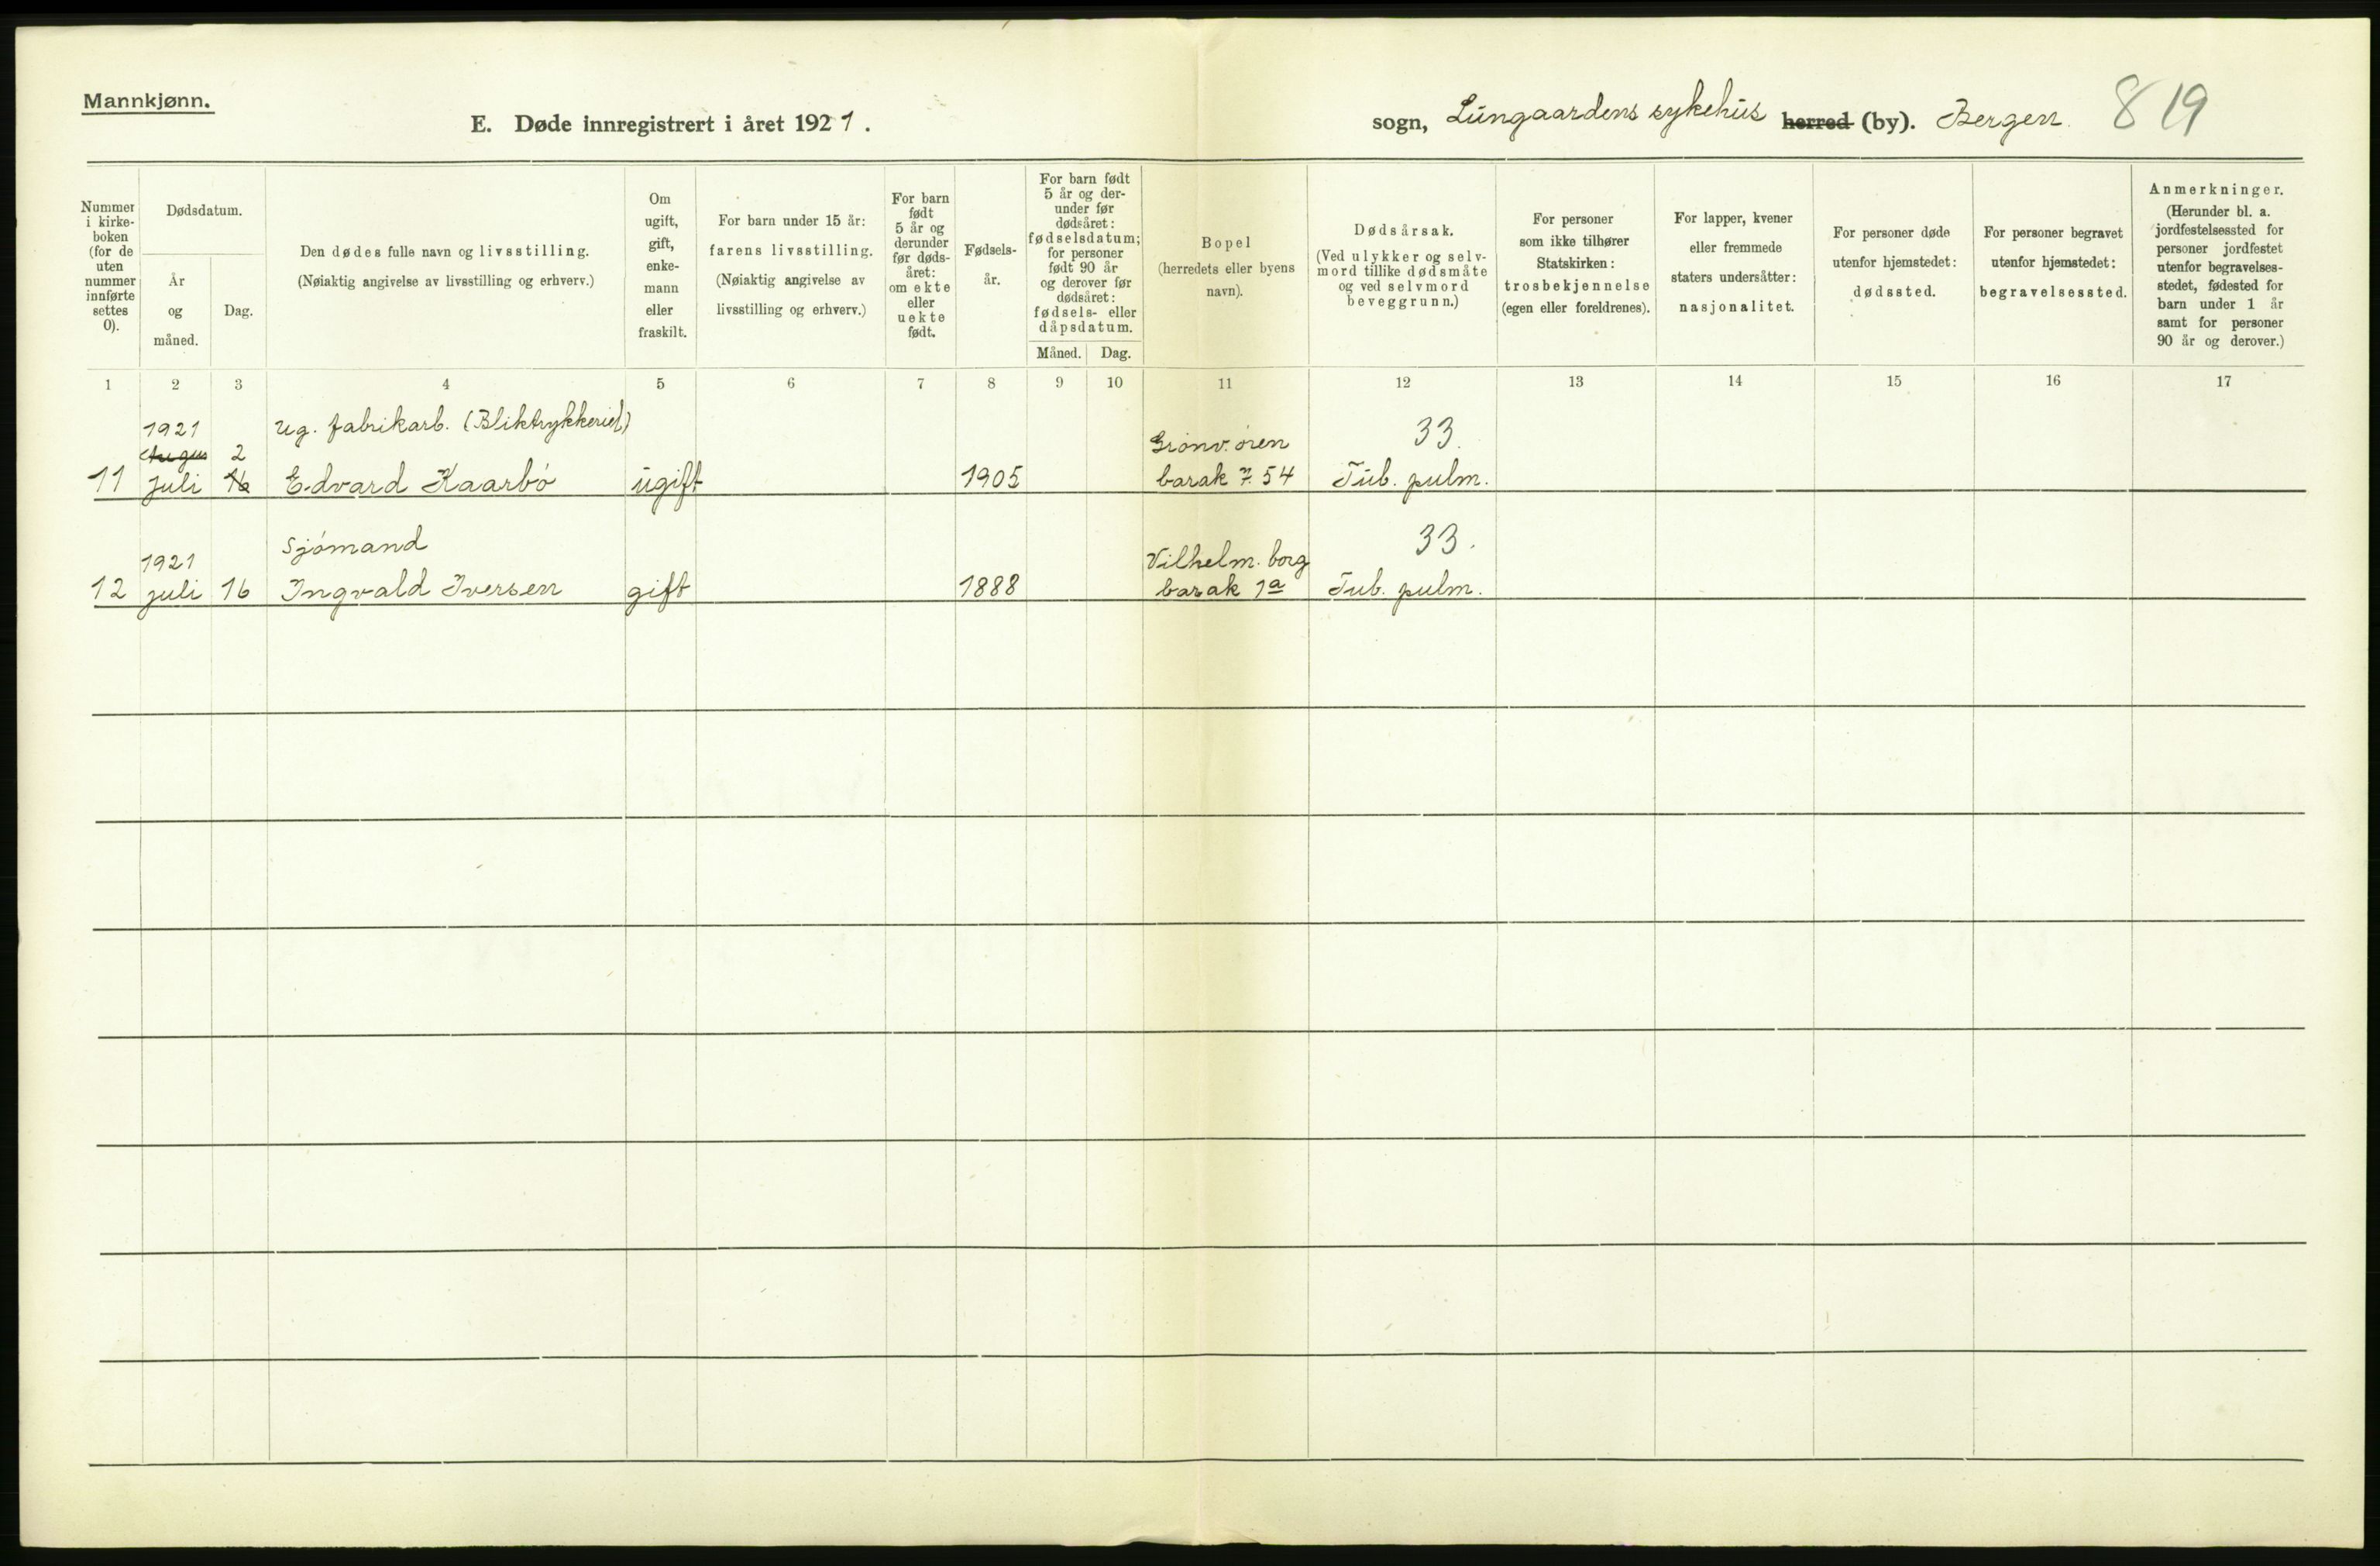 Mannkjønn.
E. Døde innregistrert i året 1921.
sogn, Lungaardens sykehus herred (by). Bergen.
819
Nummer
i kirke-
boken
(for de
uten
nummer
innførte
settes
0).
Dødsdatum.
År
og
måned.
Dag.
Den dødes fulle navn og livsstilling.
(Nøiaktig angivelse av livsstilling og erhverv.)
Om
ugift,
gift,
enke-
mann
eller
fraskilt.
For barn under 15 år:
farens livsstilling.
(Nøiaktig angivelse av
livsstilling og erhverv.)
For barn
født
5 år og
derunder
før døds-
året:
om ekte
eller
uekte
født.
Fødsels-
år.
For barn født
5 år og der-
under før
dødsåret:
fødselsdatum;
for personer
født 90 år
og derover før
dødsåret:
fødsels- eller
dåpsdatum.
Måned. Dag.
Bopel
(herredets eller byens
navn).
Dødsårsak.
(Ved ulykker og selv-
mord tillike dødsmåte
og ved selvmord
beveggrunn.)
For personer
som ikke tilhører
Statskirken:
trosbekjennelse
(egen eller foreldrenes).
For lapper, kvener
eller fremmede
staters undersåtter:
nasjonalitet.
For personer døde
utenfor hjemstedet:
dødssted.
For personer begravet
utenfor hjemstedet:
begravelsessted.
Anmerkninger.
(Herunder bl. a.
jordfestelsessted for
personer jordfestet
utenfor begravelses-
stedet, fødested for
barn under 1 år
samt for personer
90 år og derover.)
1 2 3 4 5 6 7 8 9 10 11 12 13 14 15 16 17
1921 Ug. fabrikarb. (Bliktrykkeriet) 33.
Augus 2 Grønv. øren
11 juli 16 Edvard Kaarbø ugift 1905 barak 7. 54 Tub. pulm.
Sjømand 33.
1921 Vilhelm. borg
12 juli 16 Ingvald Iversen gift 1888 barak 1a Tub. pulm.